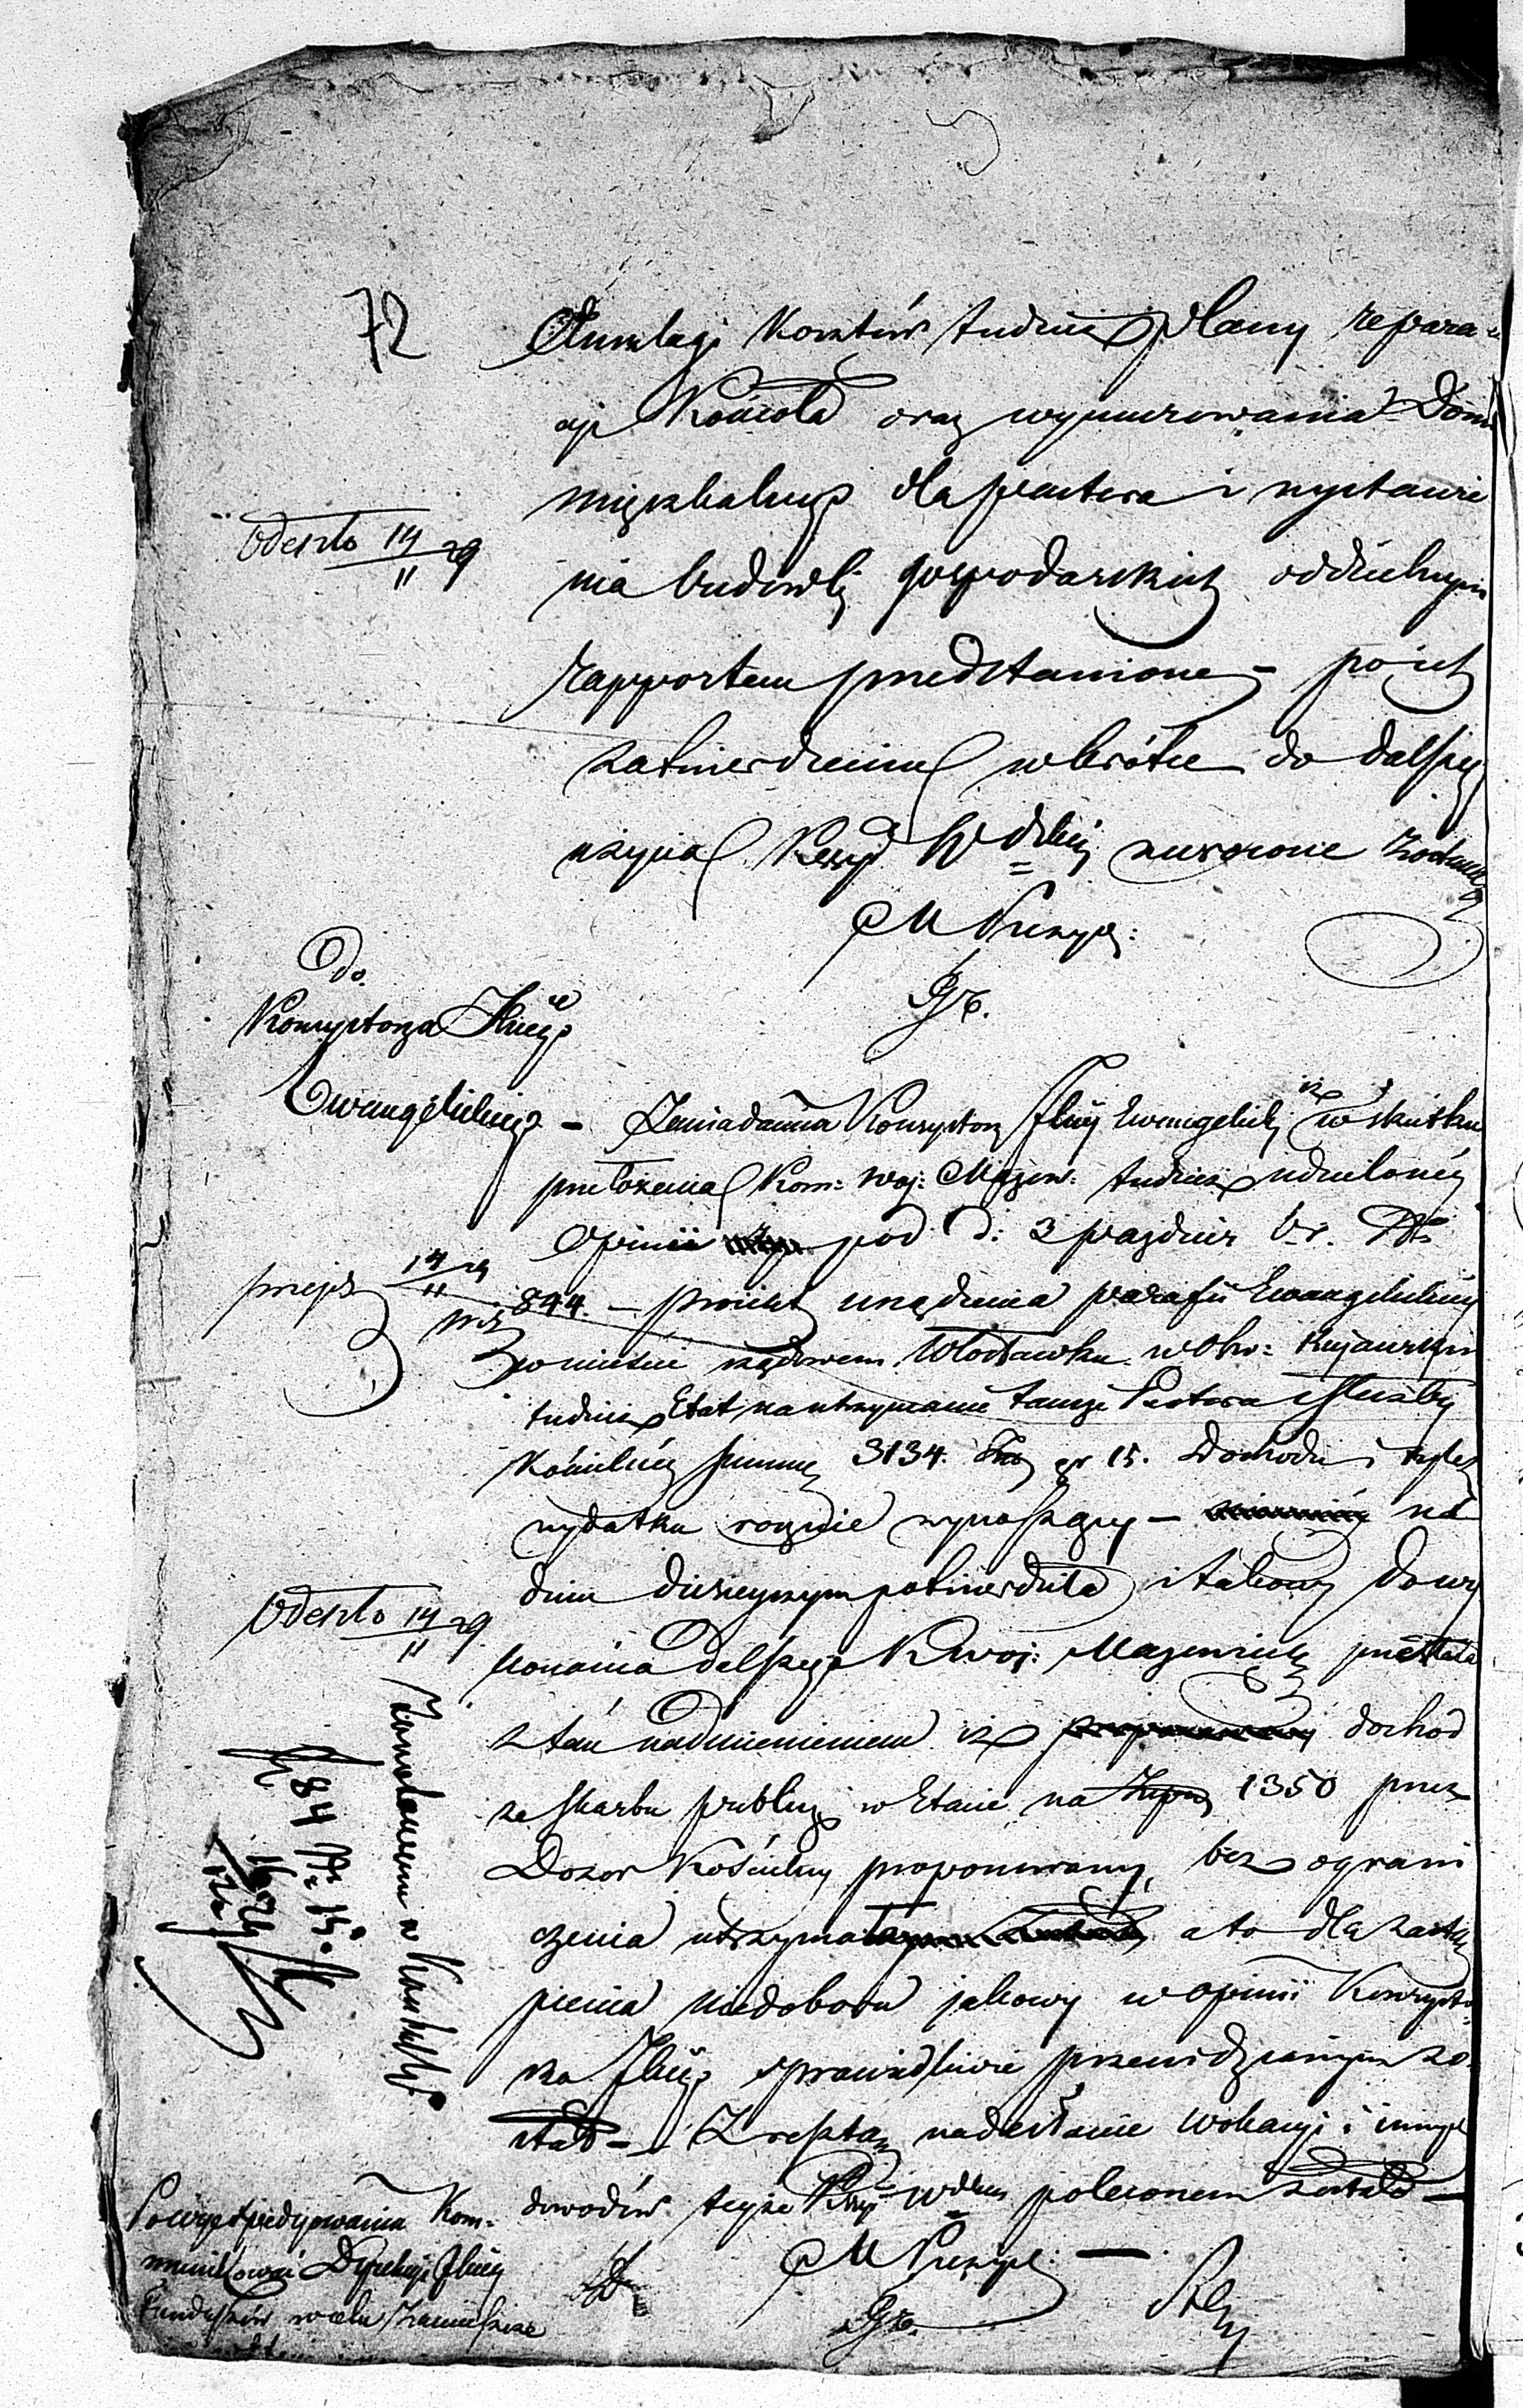 72
Anszlagi kosztów tudzież plany repara=
cji Kościoła oraz wymurowania Domu
mieszkalnego dla pastora i wystawie
nia budowli gospodarskich oddzielnym
rapportem przedstawione – po ich
zatwierdzeniu w krótce do dalszego
użycia Kssyi Wdzkiej zwrócone zostaną
Odeszło 14/11 29
P M Prezyd:
Gr.
Do
Konsystorza Jlnego
Ewangelickiego –
Zawiadamia Konsystorz Jlny Ewangelicki iż w skutku
przełożenia Kom: Woj: Mazow: tudzież udzieloney
Opinii pod d: 3 paździer b. r. Nr
844. – projekt urządzenia parafii Ewangelickiey
w mieście rządowem Włocławku w Obw: Kujawskim
tudzież Etat na utrzymanie tamże Pastora i służby
Kościelney summę 3134. gr 15. Dochodu i tyleż
wydatku rocznie wynoszący – na
dniu dzisieyszym potwierdziła i takowy do wy
konania dalszego K woj: Mazowieckiey przesłała
z tém nadmienieniem iż dochód
ze skarbu publicz w Etacie na 1350 przez
Dozor Kościelny proponowany, bez ograni
czenia utrzymała a to dla zastą
pienia niedoboru jakowy w Opinii Konsysto
rza Jlnego sprawiedliwie przewidzianym zo
stał – Zresztą nadesłanie wokacyi i innych
dowodów teyże Kssyi Wdzkiey poleconem zostało –
przejrz 14/11 29
Odeszło 14/11 29
84
15
P M Prezyd: –
Gr.
Po wyexpedyowaniu kom=
munikować Dyrekcyi Jlney
Funduszów w celu